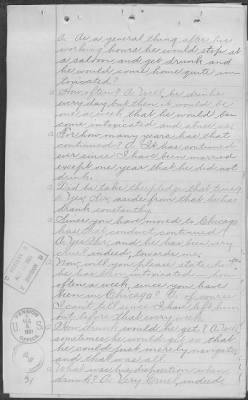 A. As a general thing after his
working hours he would stop at
a saloon and get drunk and
he would come home quite in-
toxicated?
Q How often? A. Well, he drinks
every day but then it would be
once a week that he would be-
come intoxicated and abuse me.
Q For how many years has that
continued? A. It has continued
ever since I have been married
except one year that he did not
drink.
Q Did he take the pledge at that time?
A Yes, sir, aside from that he has
drank constantly.
Q Since you have moved to Chicago
has that conduct continued?
A Yes sir, and he has been very
cruel indeed, towards me.
Q Now will you please state
he has been intoxicated how
often a week, since you have
been in Chicago? A. Of course
I can't tell since I have left him
but before that every week.
Q How drunk would he get? A. Well
sometimes he would get so that
he could just merely navigate,
and that was all.
Q What was his disposition when
drunk? A. Very cruel, indeed
PENSION
U S
OFFICE